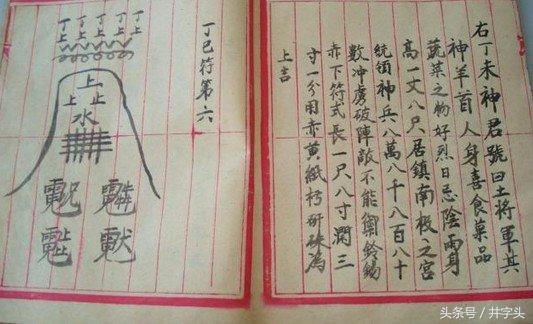 右丁未神君號曰土將軍其
神羊首人身喜食菓品
蔬菜之物好烈日忌陰雨身
高一丈八尺居鎮南极之宮
統領神兵八萬八千八百八十
數冲虜破陣敵不能禦鈴錫
赤下符式長一尺八寸濶三
寸一分用赤黄紙朽研硃為
上吉
丁巳符第六
丁丁丁丁丁
上上上上上
上
上止
水
头条号 / 井字头